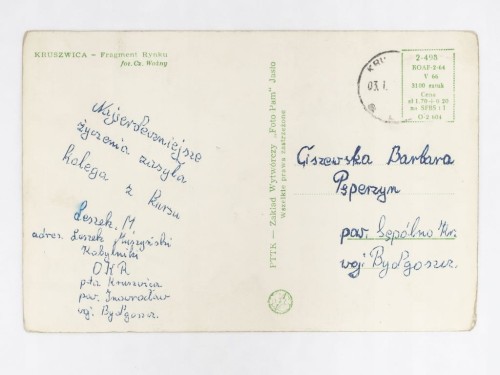 KRUSZWICA – Fragment Rynku
fot. Cz. Woźny
Najserdeczniejsze
życzenia zasyła
kolega z kursu
Leszek. M
adres. Leszek Muszyński
Kobylniki
OKR
pta Kruszwica
pow. Inowrocław
woj. Bydgoszcz.
PTTK – Zakład Wytwórczy „Foto Pam" Jasło
wszelkie prawa zastrzeżone
KRU
03.1.
2-495
V 66
3100 sztuk
Cena
zł 1.70 + 0.20
na SFBS i I
O-2 604
Ciszewska Barbara
Pęperzyn
pow. Sępólno Kr.
woj. Bydgoszcz.